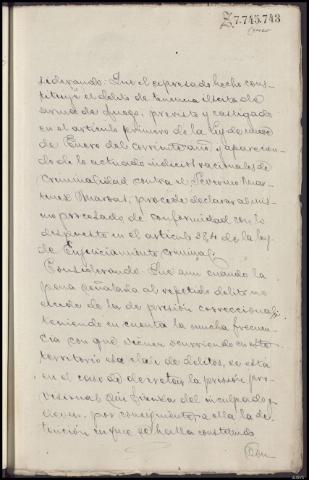 Z.7.745.743
siderando: Que el expresado hecho cons-
tituye el delito de tenencia ilícita de
armas de fuego, previsto y castigado
en el artículo primero de la ley de nueve
de Enero del corriente año y aparecien-
do de lo actuado indicios racionales de
criminalidad contra el Severino Mar-
tinez Marvas, procede declarar al mis-
mo procesado de conformidad con lo
dispuesto en el artículo 384 de la ley
de Enjuiciamiento criminal.
Considerando: Que aun cuando la
pena señalada al repetido delito no
excede de la de prisión correccional,
teniendo en cuenta la mucha frecuen-
cia con que vienen ocurriendo en este
territorio esta clase de delitos, se está
en el caso de decretar la prisión pro-
visional sin fianza del inculpado y
elevar por consiguiente a ella la de-
tención en que se halla constituido